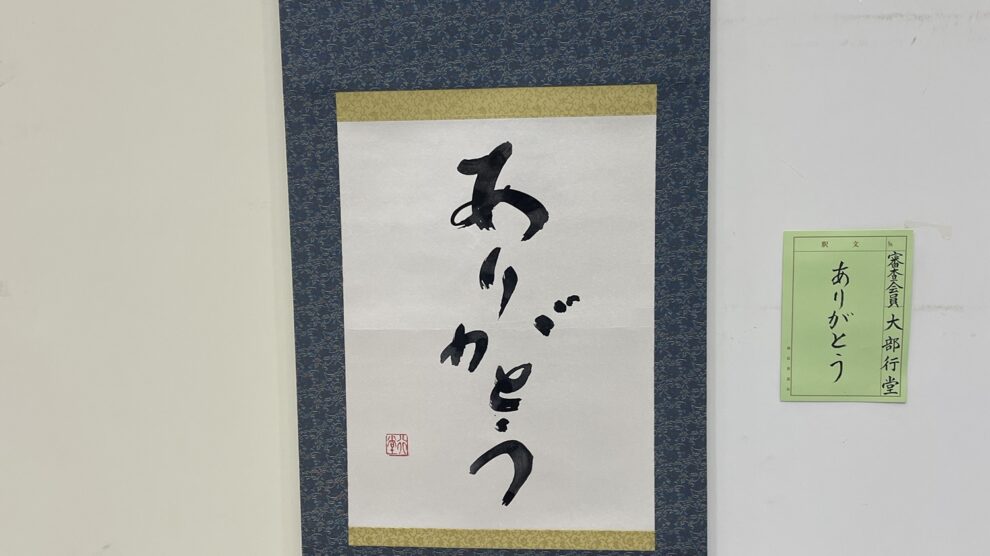 ありがとう
行堂
No.
審査会員 大部行堂
釈文
ありがとう